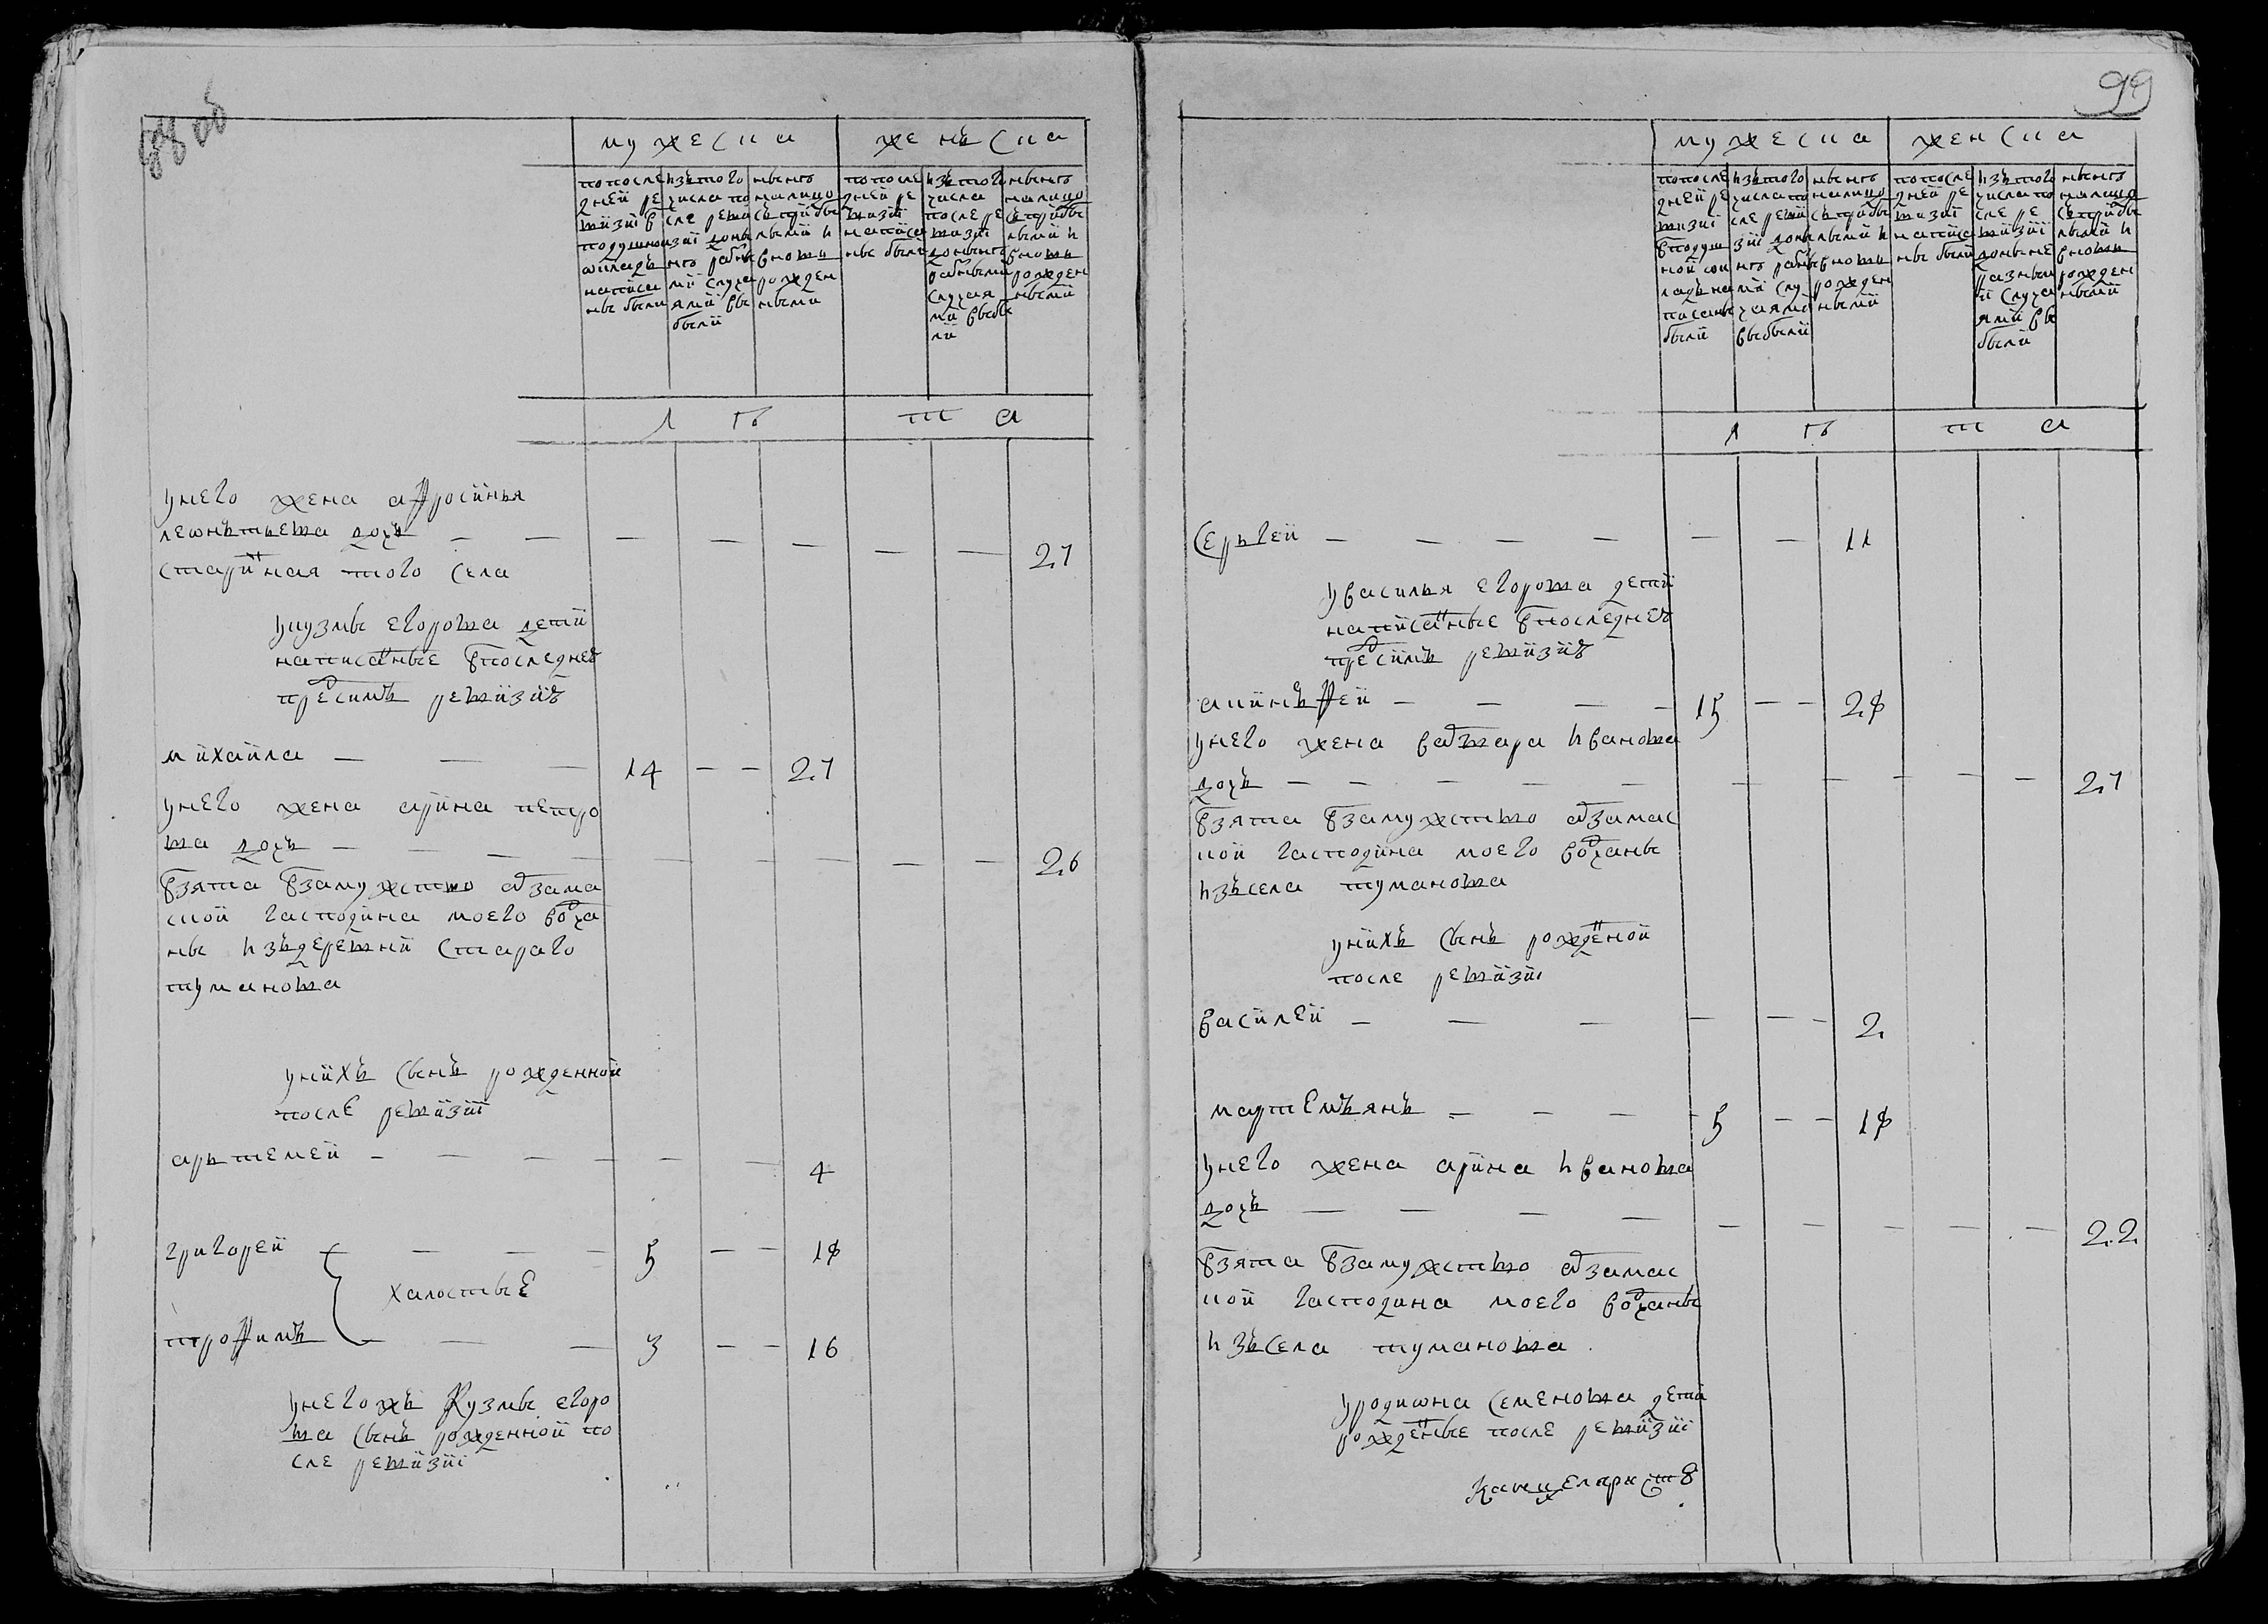 мужеска женъска
попосле дней ре визиі в подушно ѡкладъ написа ные были
изътого числа по сле реви зиі доны нѣ разны ми случа ями вы были
ныне налицо спрйбы лыми и вновь рожден ными
попосле дней ре визиі написа ные были
изътого числа после ре визиі доныне разными случая ми выбы ли
ныне налицо спрйбы лыми и вновь рожден ными
л ѣ т а
унего жена афросинья
леонътьева дочь — — — — — — — 27
старинная того села
укузмы егорова дети
написанные впоследнеѣ
пресимъ ревизиѣ
михаила — — — 14 — — 27
унего жена арина петро
ва дочь — — — — — — — — — 26
взята взамужство арзама
ской гасподина моего вотча
ны изъдеревни стараго
туманова
унихъ сынъ рожденной
после ревизиі
арътемей — — — — — — 4
григорей — — — 5 — — 18
халостые
трофимъ — — — 3 — — 16
унегожъ кузмы егоро
ва сынъ рожденной по
сле ревизиі
99
мужеска женска
попосле дней ре визиі вподуш ной ѡк ладъ на писаны были
изътого числа по сле реви зиі доны нѣ разны ми слу чаями выбыли
ныне налицо спрйбы лыми и вновь рожден ными
попосле дней ре визиі написа ные были
изътого числа по сле ре визиі доныне разным и случа ями вы были
ныне налицо спрйбы лыми и вновь рожден ными
л ѣ т а
серьгей — — — — — — 11
увасилья егорова дети
написанные впоследнеѣ
пресимъ ревизиѣ
акинъфей — — — — 15 — — 28
унего жена варвара иванова
дочь — — — — — — — — — — 27
взята взамужство арзамас
кой гасподина моего вотчаны
изъсела туманова
унихъ сынъ рожденной
после ревизиі
василей — — — — — — 2
мартемъянъ — — — — 5 — — 18
унего жена арина иванова
дочь — — — — — — — — — 22
взята взамужство арзамас
кой гасподина моего вотчаны
изъсела туманова
уродиѡна семенова дети
рожденные после ревизиі
канцеляристъ